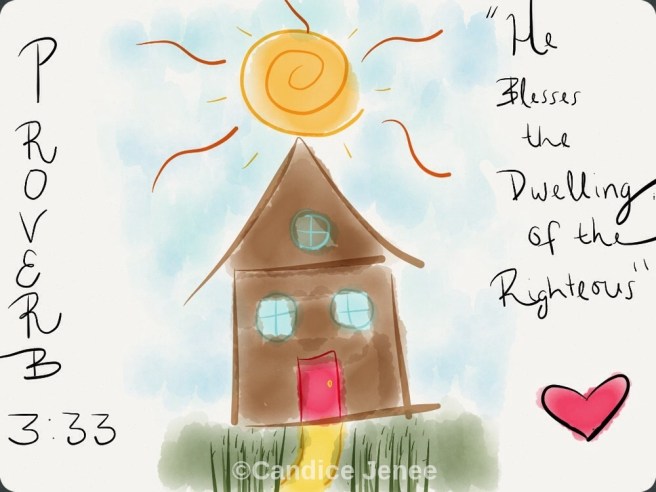 PROVERB
3:33
"He
Blesses
the
Dwelling
of the
Righteous"
©Candice Jenee